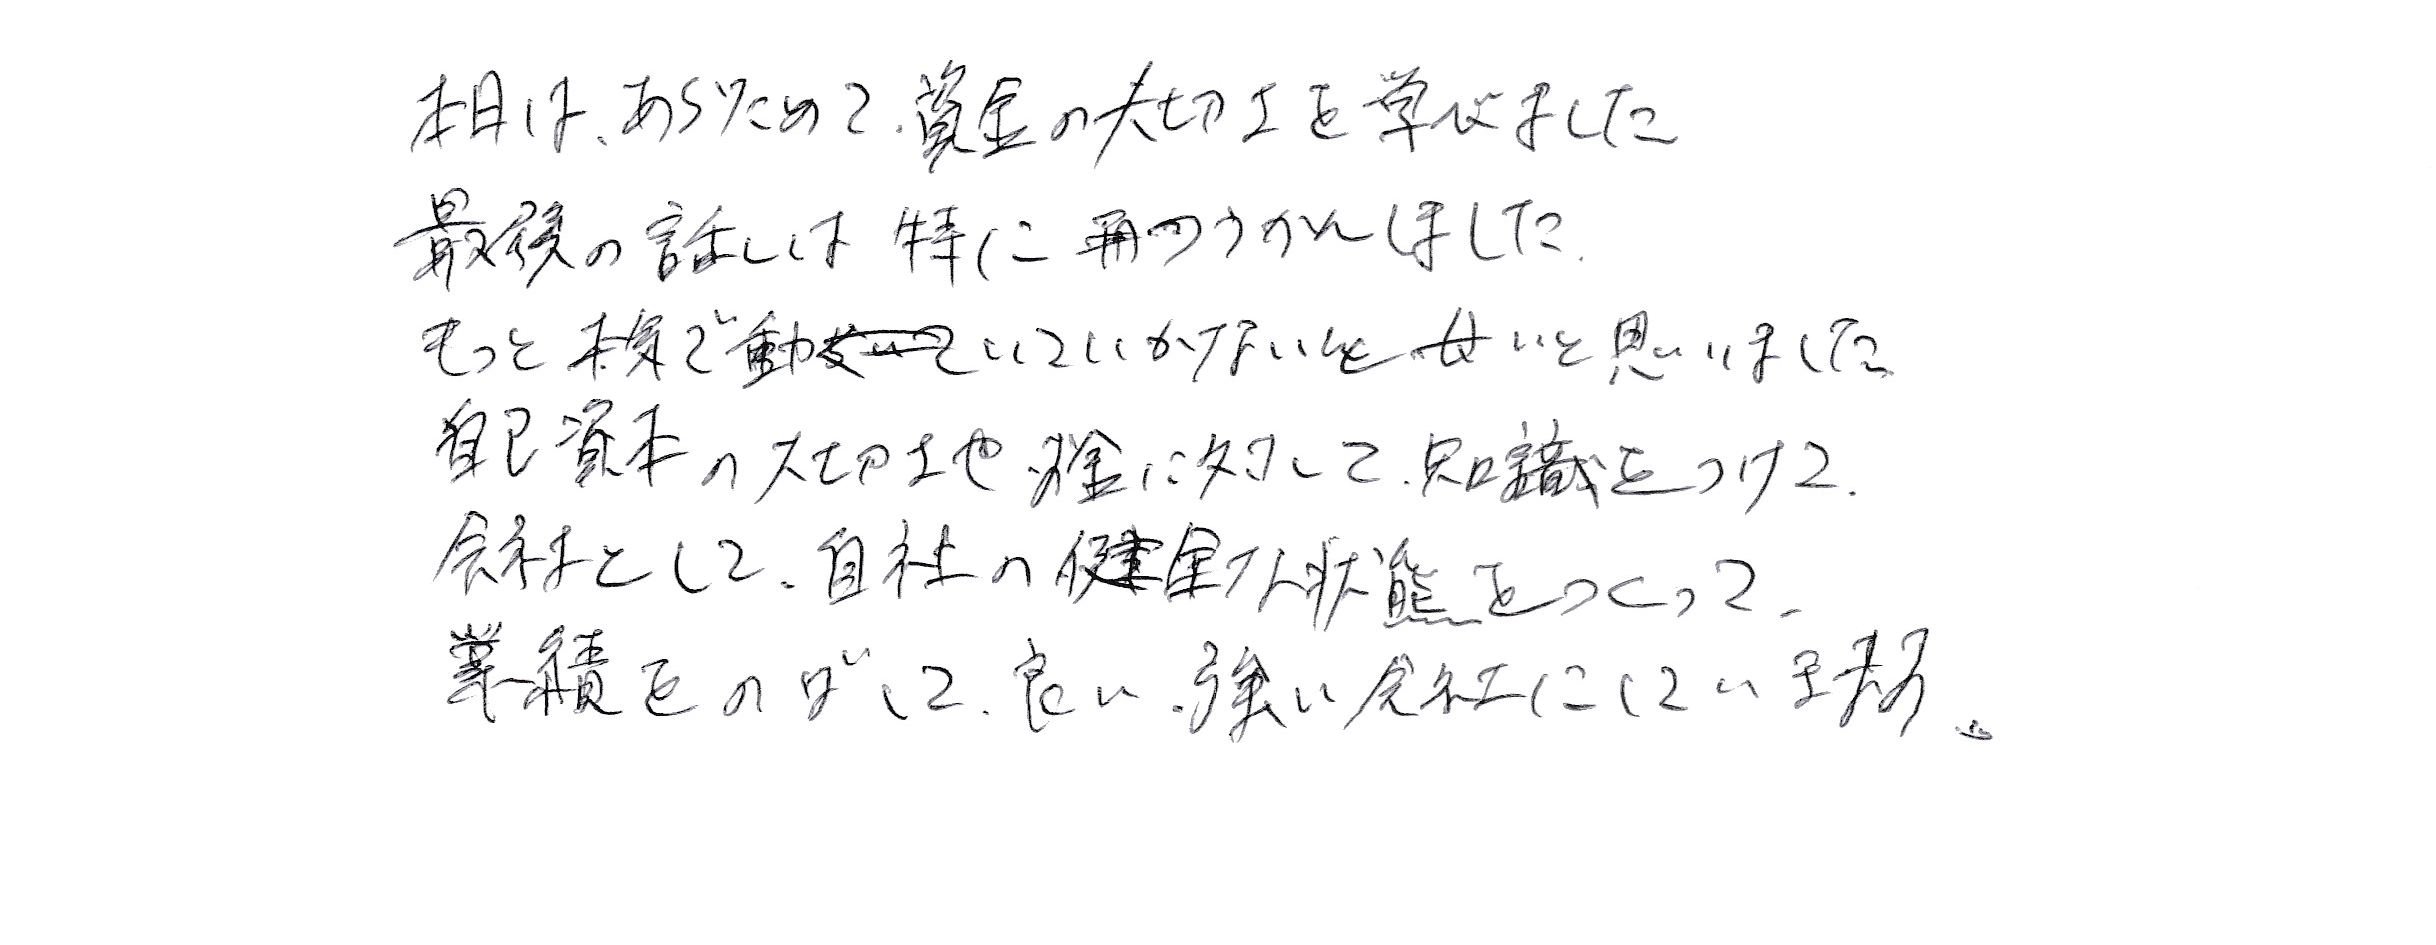 本日は、あらためて、資金の大切さを学べました
最後の話しは 特に つうかんしました.
もっと本気で動いていかないと いと思いました
自己資本の大切さや、お金に対して、知識をつけて、
会社として、自社の健全な状態をつくって、
業績をのばして、良い、強い会社にしていきます。